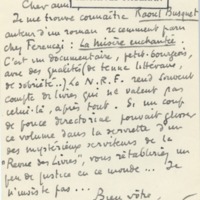 Cher ami
Je me trouve connaître Raoul Busquet
auteur d'un roman récemment paru
chez Ferenczi : La Misère enchantée.
C'est un documentaire, petit-bourgeois,
avec des qualités (de tenue littéraire,
de sobriété..) La N.R.F. rend souvent
compte de livres qui ne valent pas
celui-là, après tout. Si un coup
de pouce directorial pouvait glisser
ce volume dans la serviette d'un
des mystérieux serviteurs de la
"Revue des livres", vous rétabliriez un
peu de justice en ce monde... Je
n'insiste pas...
Bien vôtre